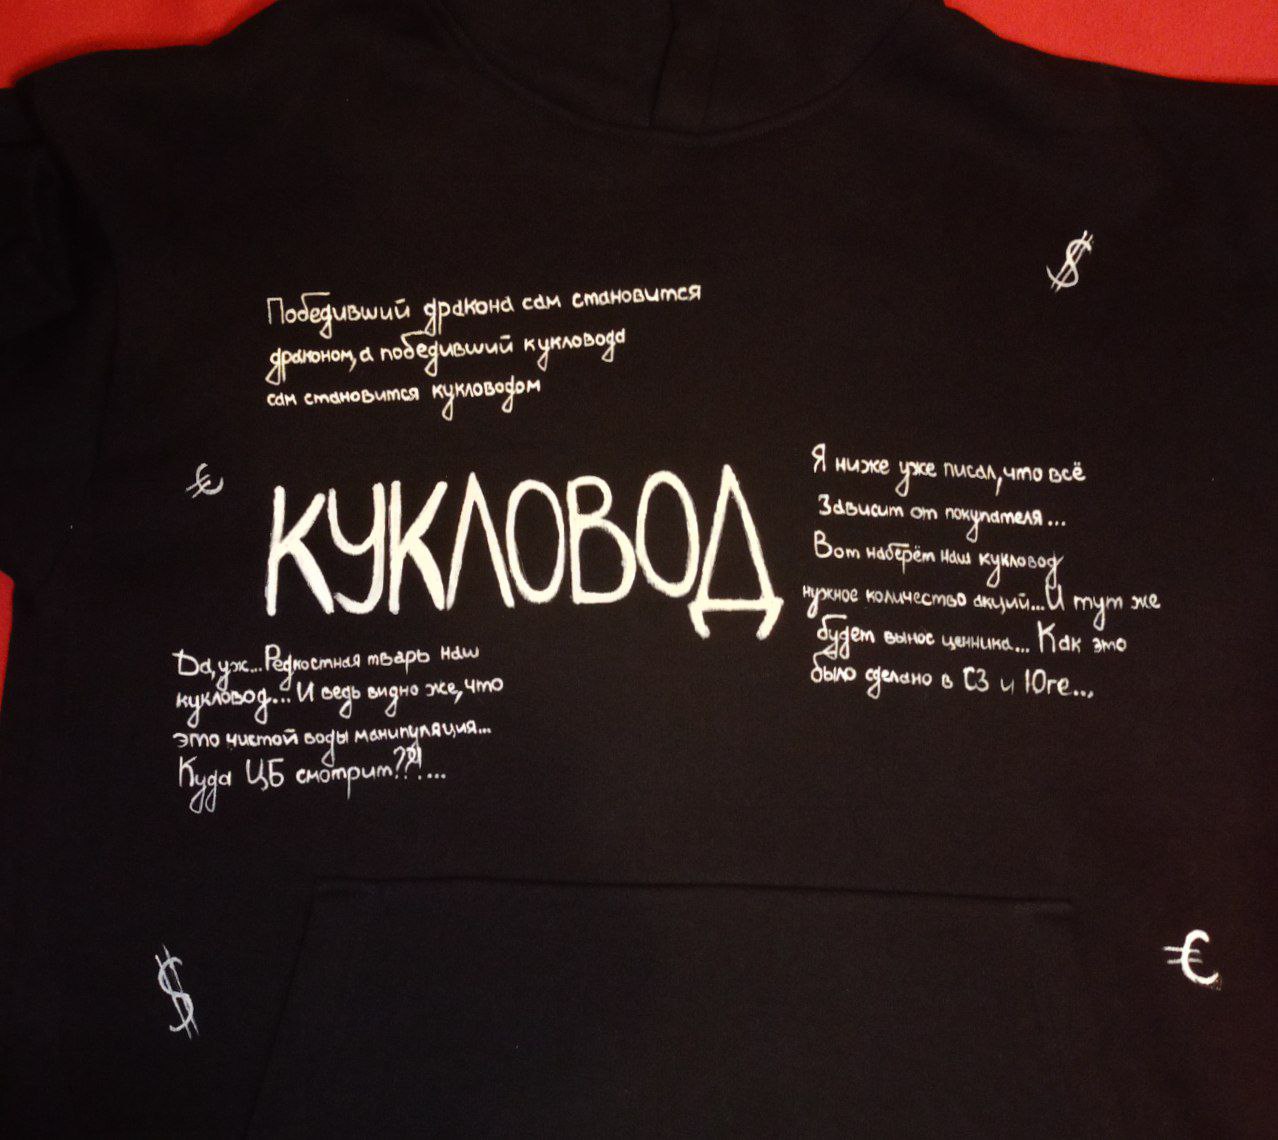 $
Победивший дракона сам становится
драконом, а победивший кукловода
сам становится кукловодом
€
КУКЛОВОД
Я ниже уже писал, что всё
Зависит от покупателя...
Вот наберём наш кукловод
нужное количество акций...И тут же
будет вынос ценника... Как это
было сделано в СЗ и Юге...
Да, уж...Редкостная тварь наш
кукловод...И ведь видно же, что
это чистой воды манипуляция...
Куда ЦБ смотрит??!...
$
€